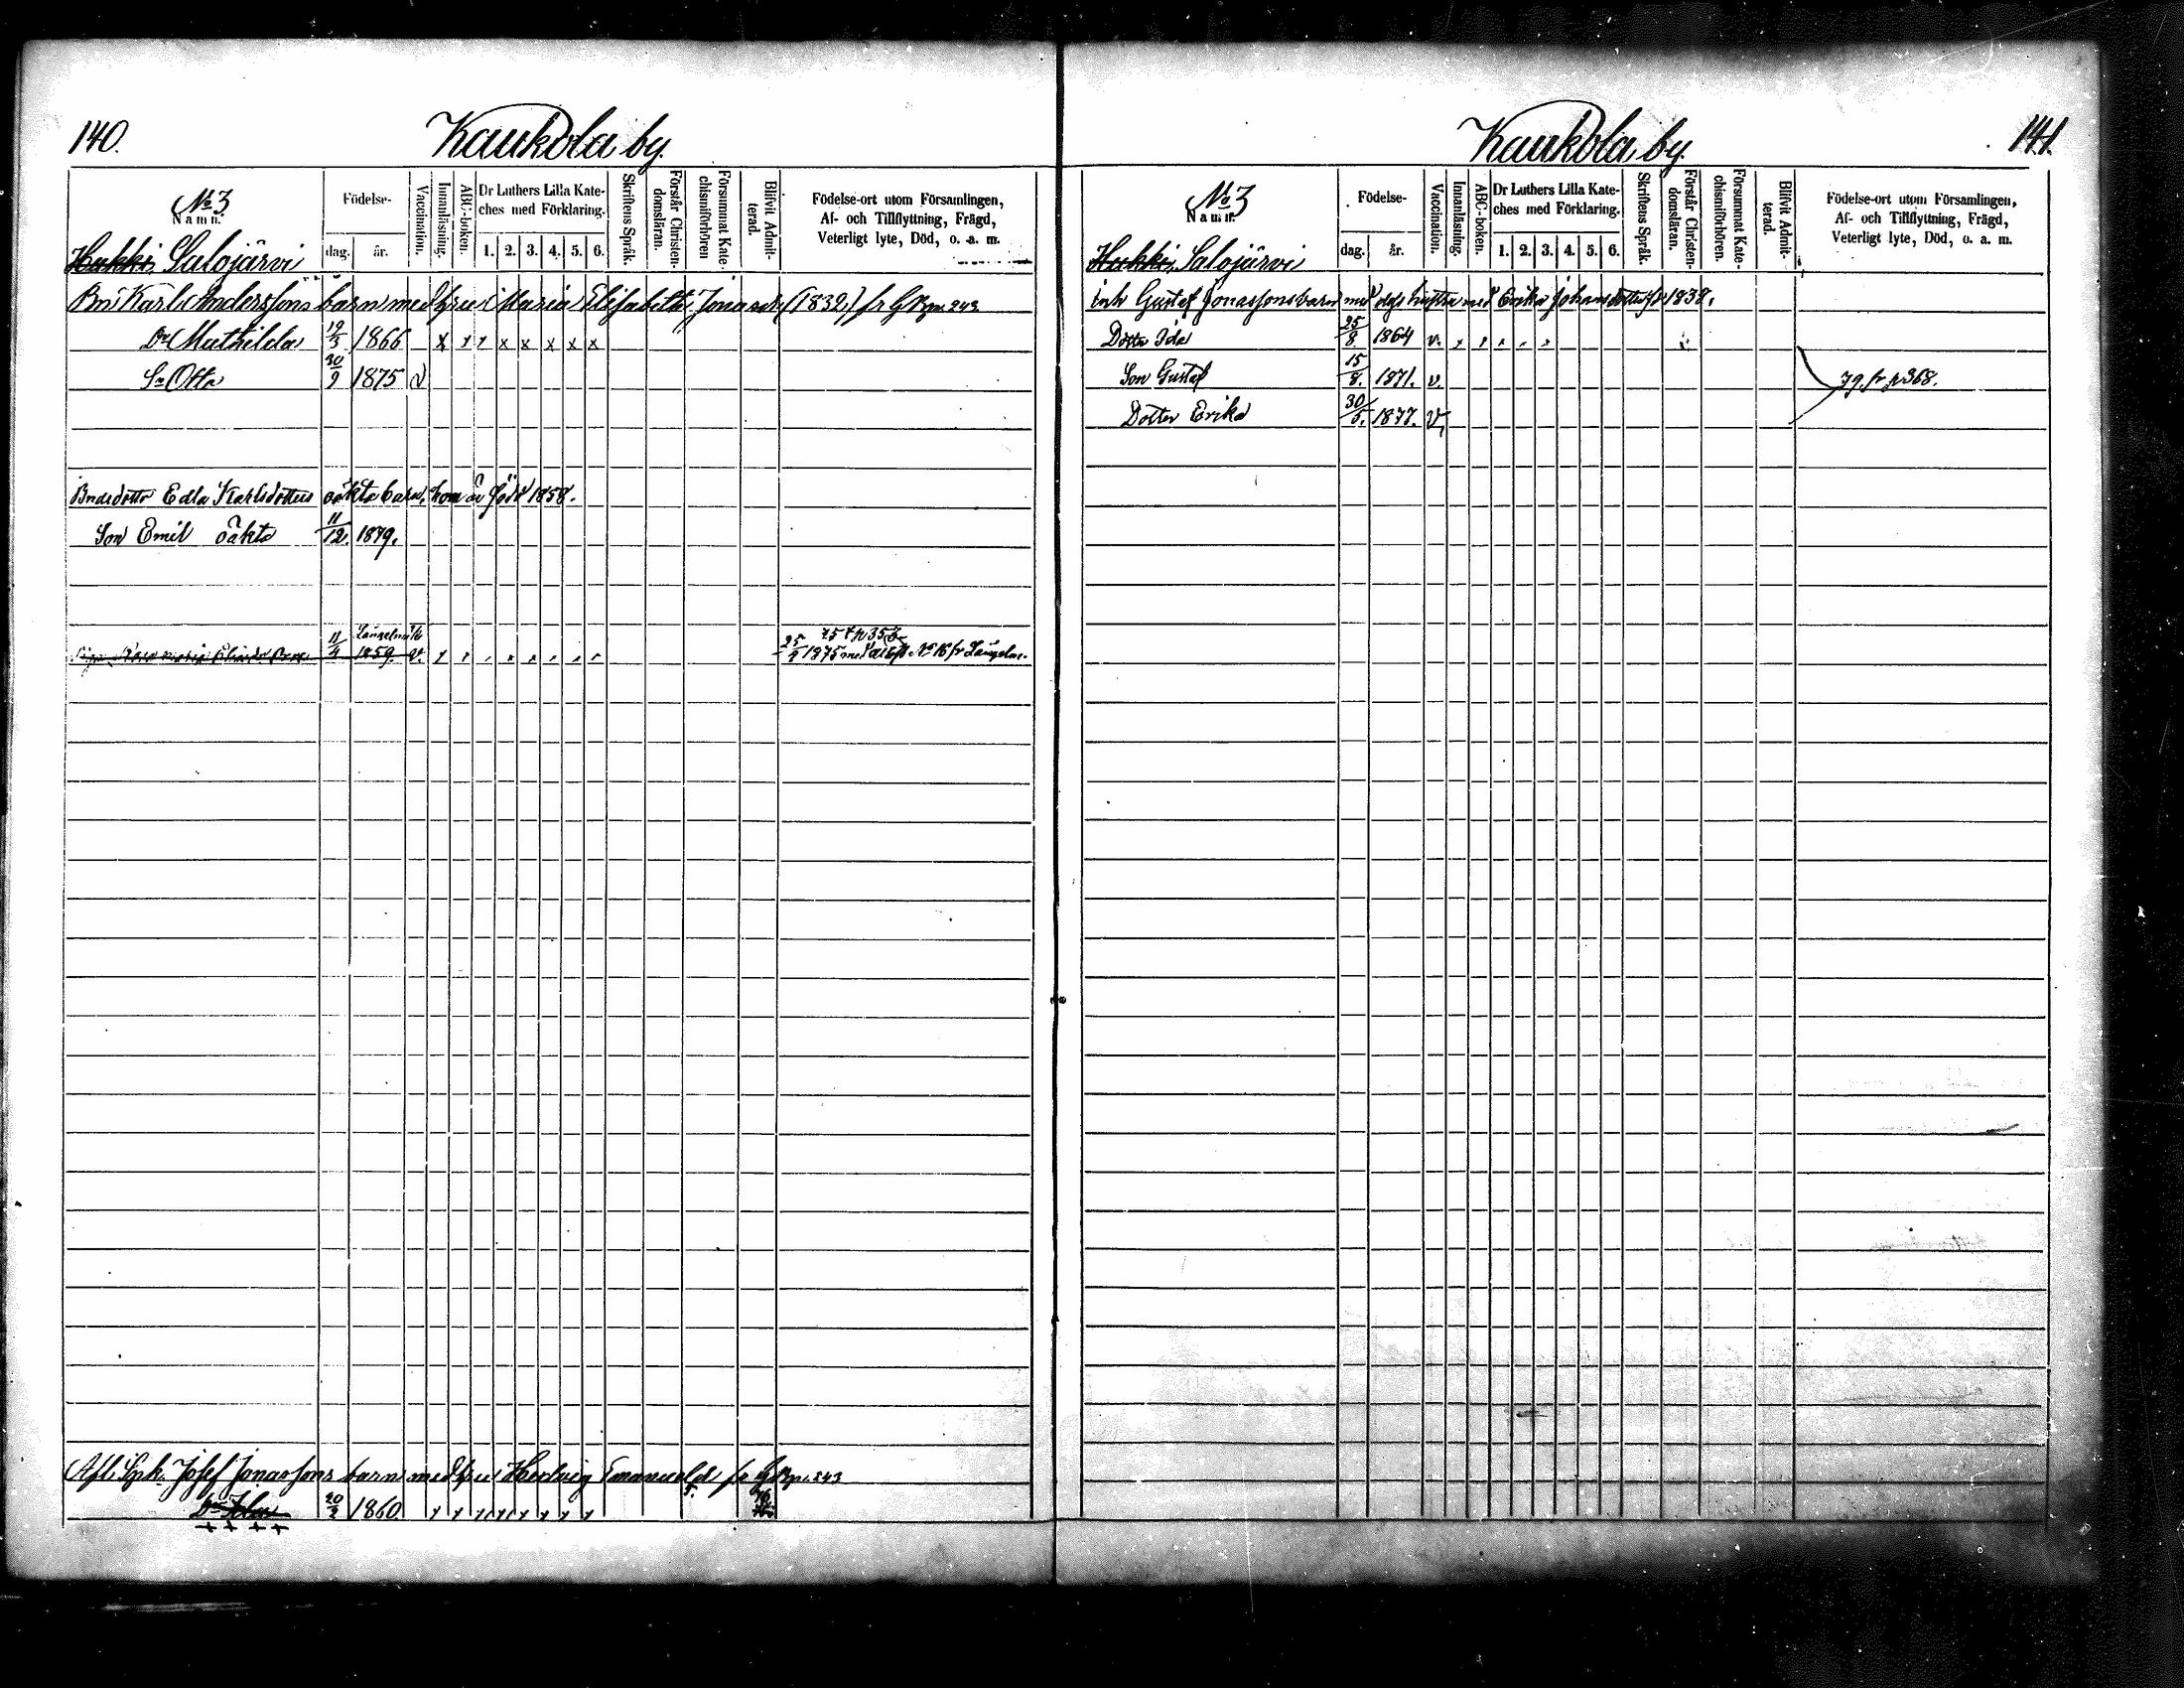 140.
Kaukola by.
No 3
Namn.
Födelse-
dag.
år.
Vaccination.
Innanläsning.
ABC-boken.
Dr Luthers Lilla Kate-
ches med Förklaring.
1. 2. 3. 4. 5. 6.
Skriftens Språk.
Förstår Christen-
domsläran.
Försummat Kate-
chismiförhören
Blifvit Admit-
terad.
Födelse-ort utom Församlingen,
Af- och Tillflyttning, Frägd,
Veterligt lyte, Död, o. a. m.
Hukki, Salojärvi
Karl Anderssons barn med hru Maria Elisabeth Jonasdr (1832) fr 243
Dr Mathilda 19/3 1866 x x x x x x x x
Sn Otto 30/9 1875 v
Edla Karlsdotters oäkta barn, hon är född 1858.
Son Emil oäkta 11/12. 1879.
Maria
11/4 1859. v.
25/9 1875 No 16 fr Längelm.
Josef Jonassons barn med hru Hedvig Emanuelsd fr 243
Dr Ida 20/2 1860.
141.
Kaukola by.
No 3
Namn.
Födelse-
dag.
år.
Vaccination.
Innanläsning.
ABC-boken.
Dr Luthers Lilla Kate-
ches med Förklaring.
1. 2. 3. 4. 5. 6.
Skriftens Språk.
Förstår Christen-
domsläran.
Försummat Kate-
chismiförhören.
Blifvit Admit-
terad.
Födelse-ort utom Församlingen,
Af- och Tillflyttning, Frägd,
Veterligt lyte, Död, o. a. m.
Hukki, Salojärvi
inh Gustaf Jonassons barn med dess hustru Erika Johansdotter 1838.
Dotter Ida 25/8 1864 v.
Son Gustaf 15/8. 1871. v. 79 fr p 368.
Dotter Erika 30/5. 1877. v,